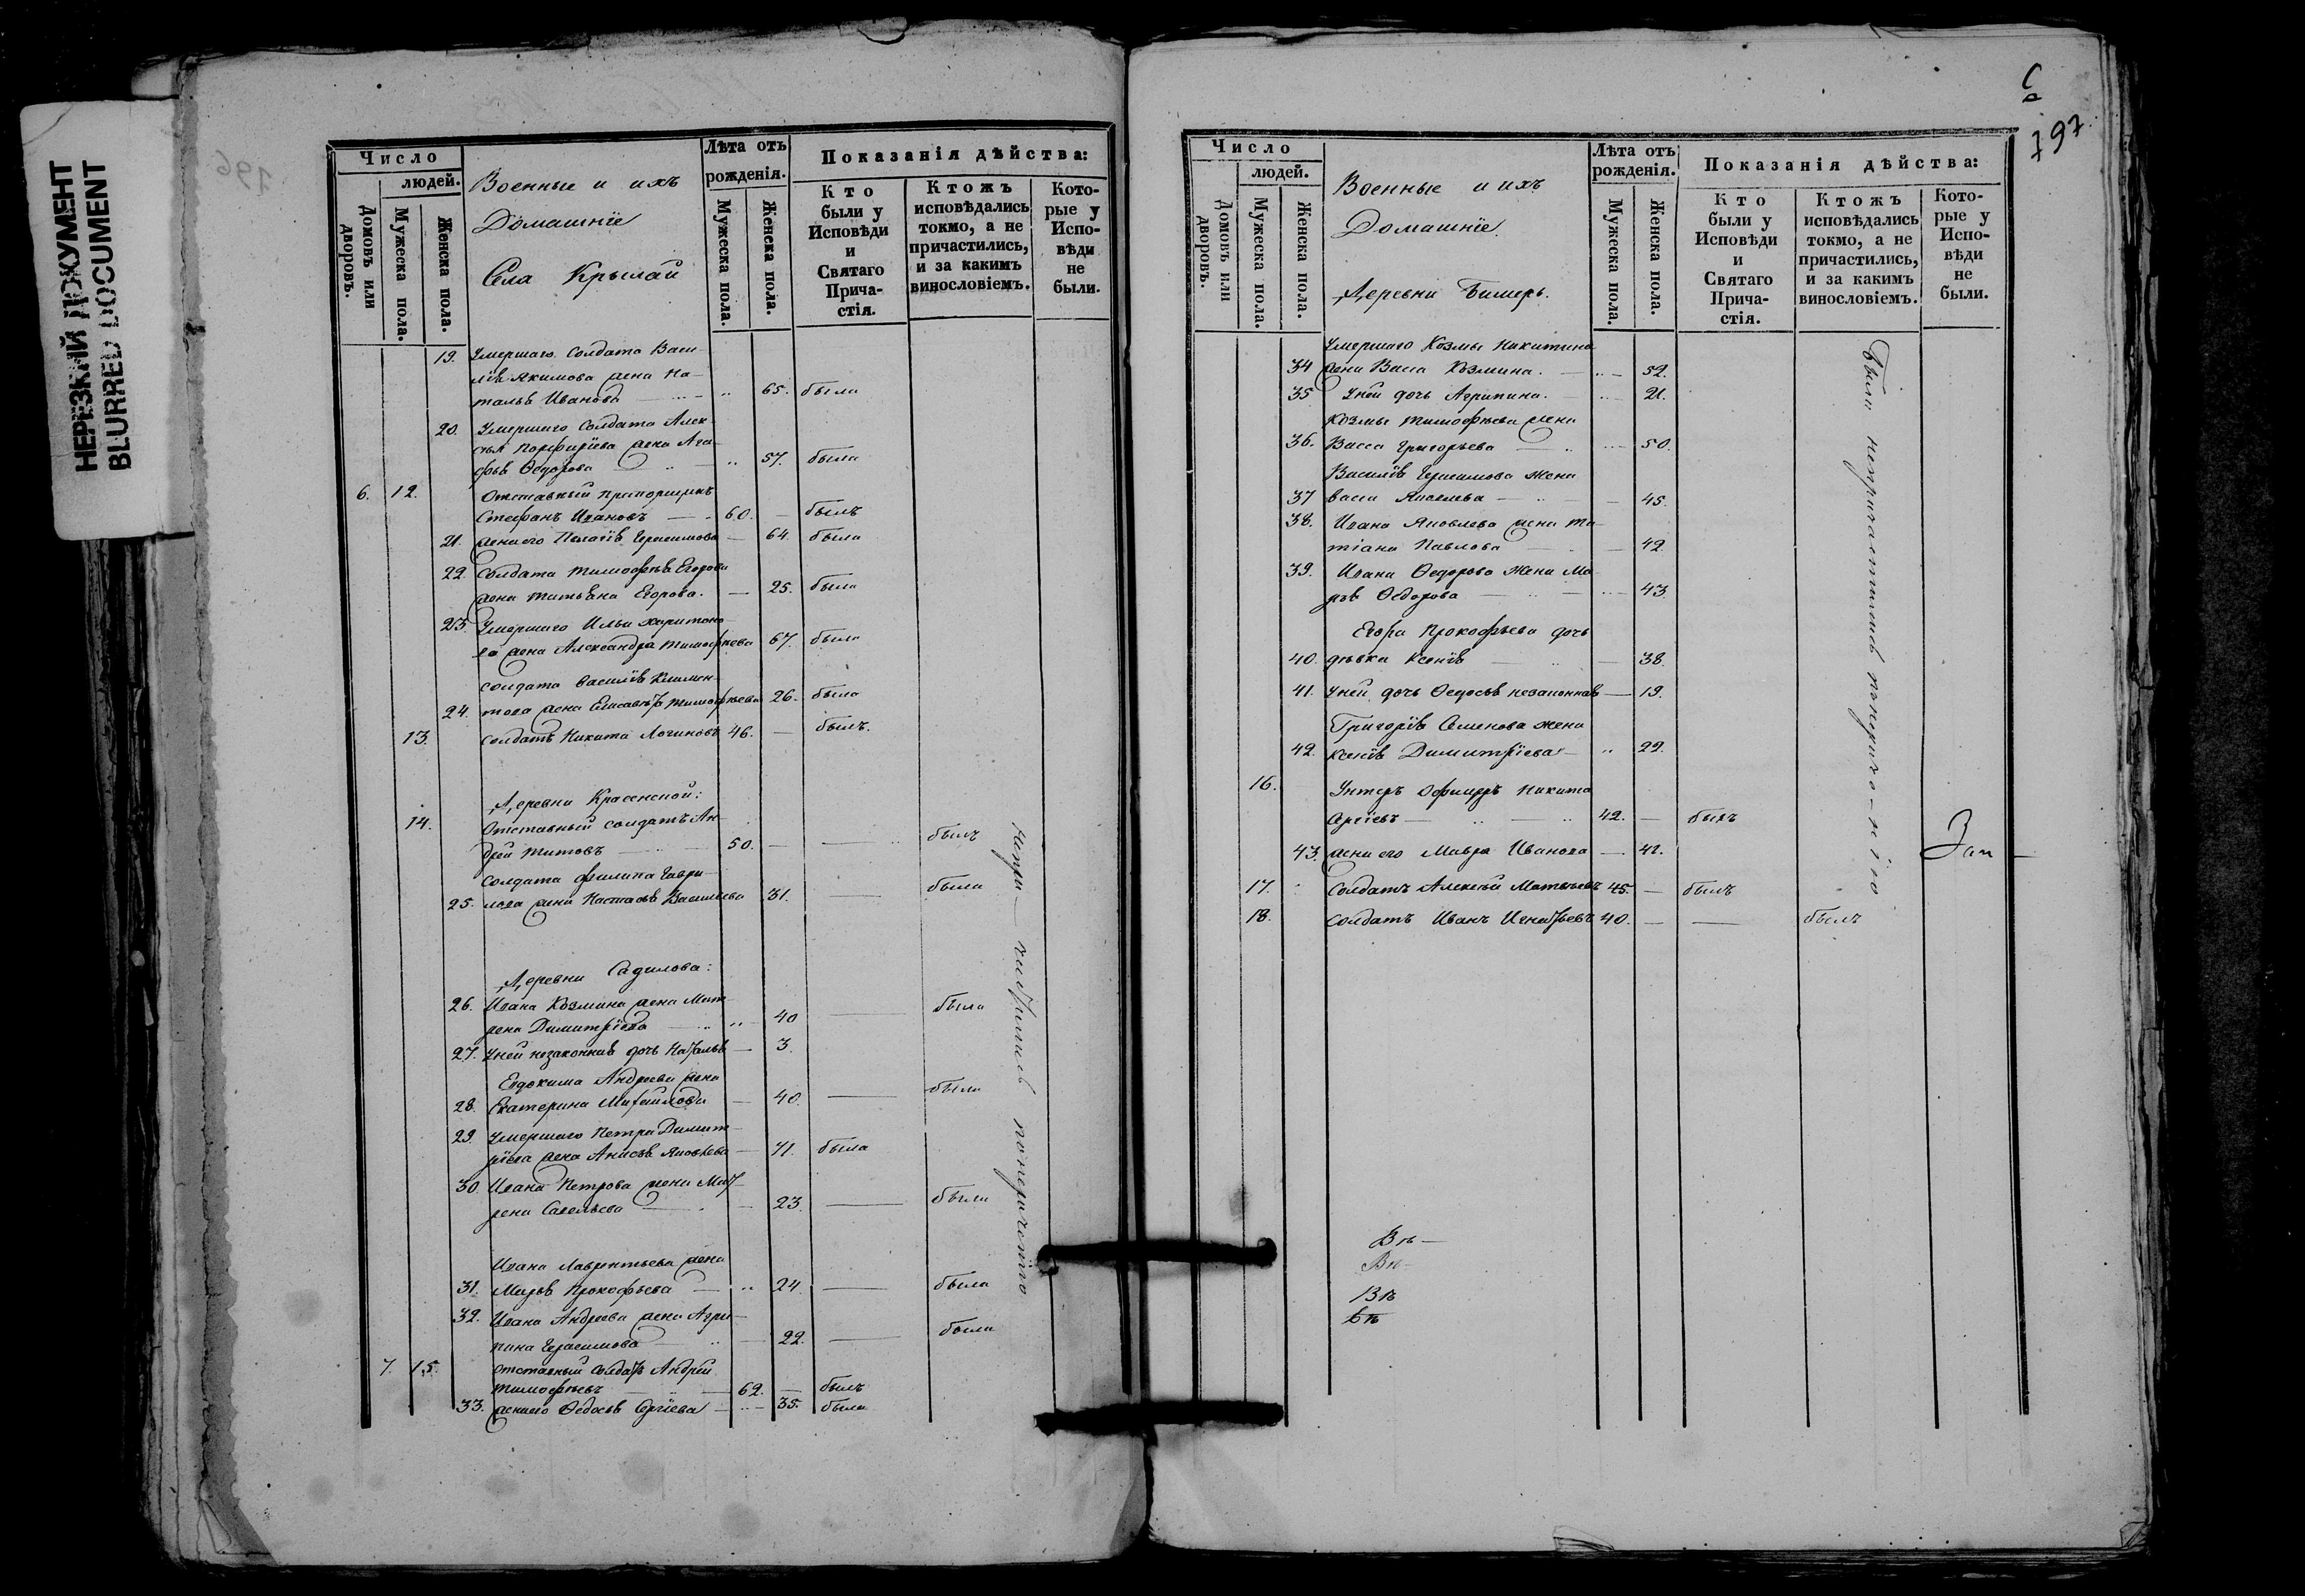 НЕРЕЗКИЙ ДОКУМЕНТ
BLURRED DOCUMENT
196
Число
людей.
Домовъ или дворовъ.
Мужеска пола.
Женска пола.
Военные и ихъ
Домашніе
Села Крылай
Лѣта отъ
рожденія.
Мужеска пола.
Женска пола.
Показанія дѣйства:
Кто
были у
Исповѣди
и
Святаго
Прича-
стія.
Ктожъ
исповѣдались
токмо, а не
причастились,
и за какимъ
винословіемъ.
Кото-
рые у
Испо-
вѣди
не
были.
19. Умершаго Солдата Васи-
лія Якимова жена На-
талья Иванова 65. была
20. Умершаго Солдата Алек-
сѣя Порфиріева жена Ага-
фья Ѳедорова 57. была
6. 12. Отставный прапорщикъ
Стефанъ Ивановъ 60. былъ
21. жена его Пелагія Герасимова 64. была
22. Солдата Тимофѣя Егорова
жена Татьяна Егорова. 25. была
23. Умершаго Ильи Харитоно-
ва жена Александра Тимофѣева 67. была
солдата Василія Климен-
24. това жена Елисавета Тимофѣева 26. была
13. солдатъ Никита Логиновъ 46. былъ.
Деревни Красенской:
14. Отставный солдатъ Ан-
дрей Титовъ 50. былъ
солдата Филипа Гаври-
25. лова жена Настасья Васильева 31. была
Деревни Садилова:
26. Ивана Козмина жена Мат-
рена Димитріева 40 была
27. У ней незаконная дочь Наталья 3.
Евдокима Андреева жена
28. Екатерина Михайлова 40. была
29. Умершаго Петра Димит-
ріева жена Анисья Яковлева 71. была
30. Ивана Петрова жена Мат-
рена Савельева 23. была
Ивана Лаврентьева жена
31. Марья Прокофьева 24. была
32. Ивана Андреева жена Агри-
пина Герасимова 22. была
7. 15. Отставный солдатъ Андрей
Тимофѣевъ 62. былъ
33. жена его Ѳедосья Сергіева 35. была
797.
Число
людей.
Домовъ или дворовъ.
Мужеска пола.
Женска пола.
Военные и ихъ
Домашніе.
Деревни Бимерь.
Лѣта отъ
рожденія.
Мужеска пола.
Женска пола.
Показанія дѣйства:
Кто
были у
Исповѣди
и
Святаго
Прича-
стія.
Ктожъ
исповѣдались
токмо, а не
причастились,
и за какимъ
винословіемъ.
Кото-
рые у
Испо-
вѣди
не
были.
Умершаго Козмы Никитина
34 жена Васса Козмина. 52.
35 У ней дочь Агрипина. 21.
Козмы Тимофѣева жена
36. Васса Григорьева 50.
Василія Герасимова жена
37 Васса 45.
38. Ивана Яковлева жена Та-
тіана Павлова 42
39. Ивана Ѳедорова жена Ма-
рья Ѳедорова 43.
Егора Прокофьева дочь
40. дѣвка Ксенія 38.
41. У ней дочь Ѳедосья незаконная 19.
Григорія Семенова жена
42. Ксенія Димитріева 22.
16. Унтеръ Офицеръ Никита
42. былъ
43. жена его Мавра Иванова 42. Зап
17. Солдатъ Алексѣй Матвѣевъ 45. былъ
18. солдатъ Иванъ Игнатьевъ 40. былъ
Вѣ
Вѣ